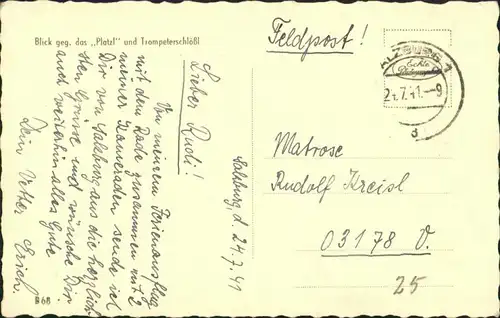 Blick geg. das „Platzl" und Trompeterschlößl
Salzburg, d. 24.7.41
Lieber Rudi!
Von meinem Ferienausflug
mit dem Rade zusammen mit 2
meiner Kameraden sende ich
Dir von Salzburg aus die herzlich
sten Grüsse und wünsche Dir
auch weiterhin alles Gute.
Dein Vetter Erich.
B 68
Feldpost!
Echte
Photographie
7.41.-9
Matrose
Rudolf Kreisl
03178 V.
25